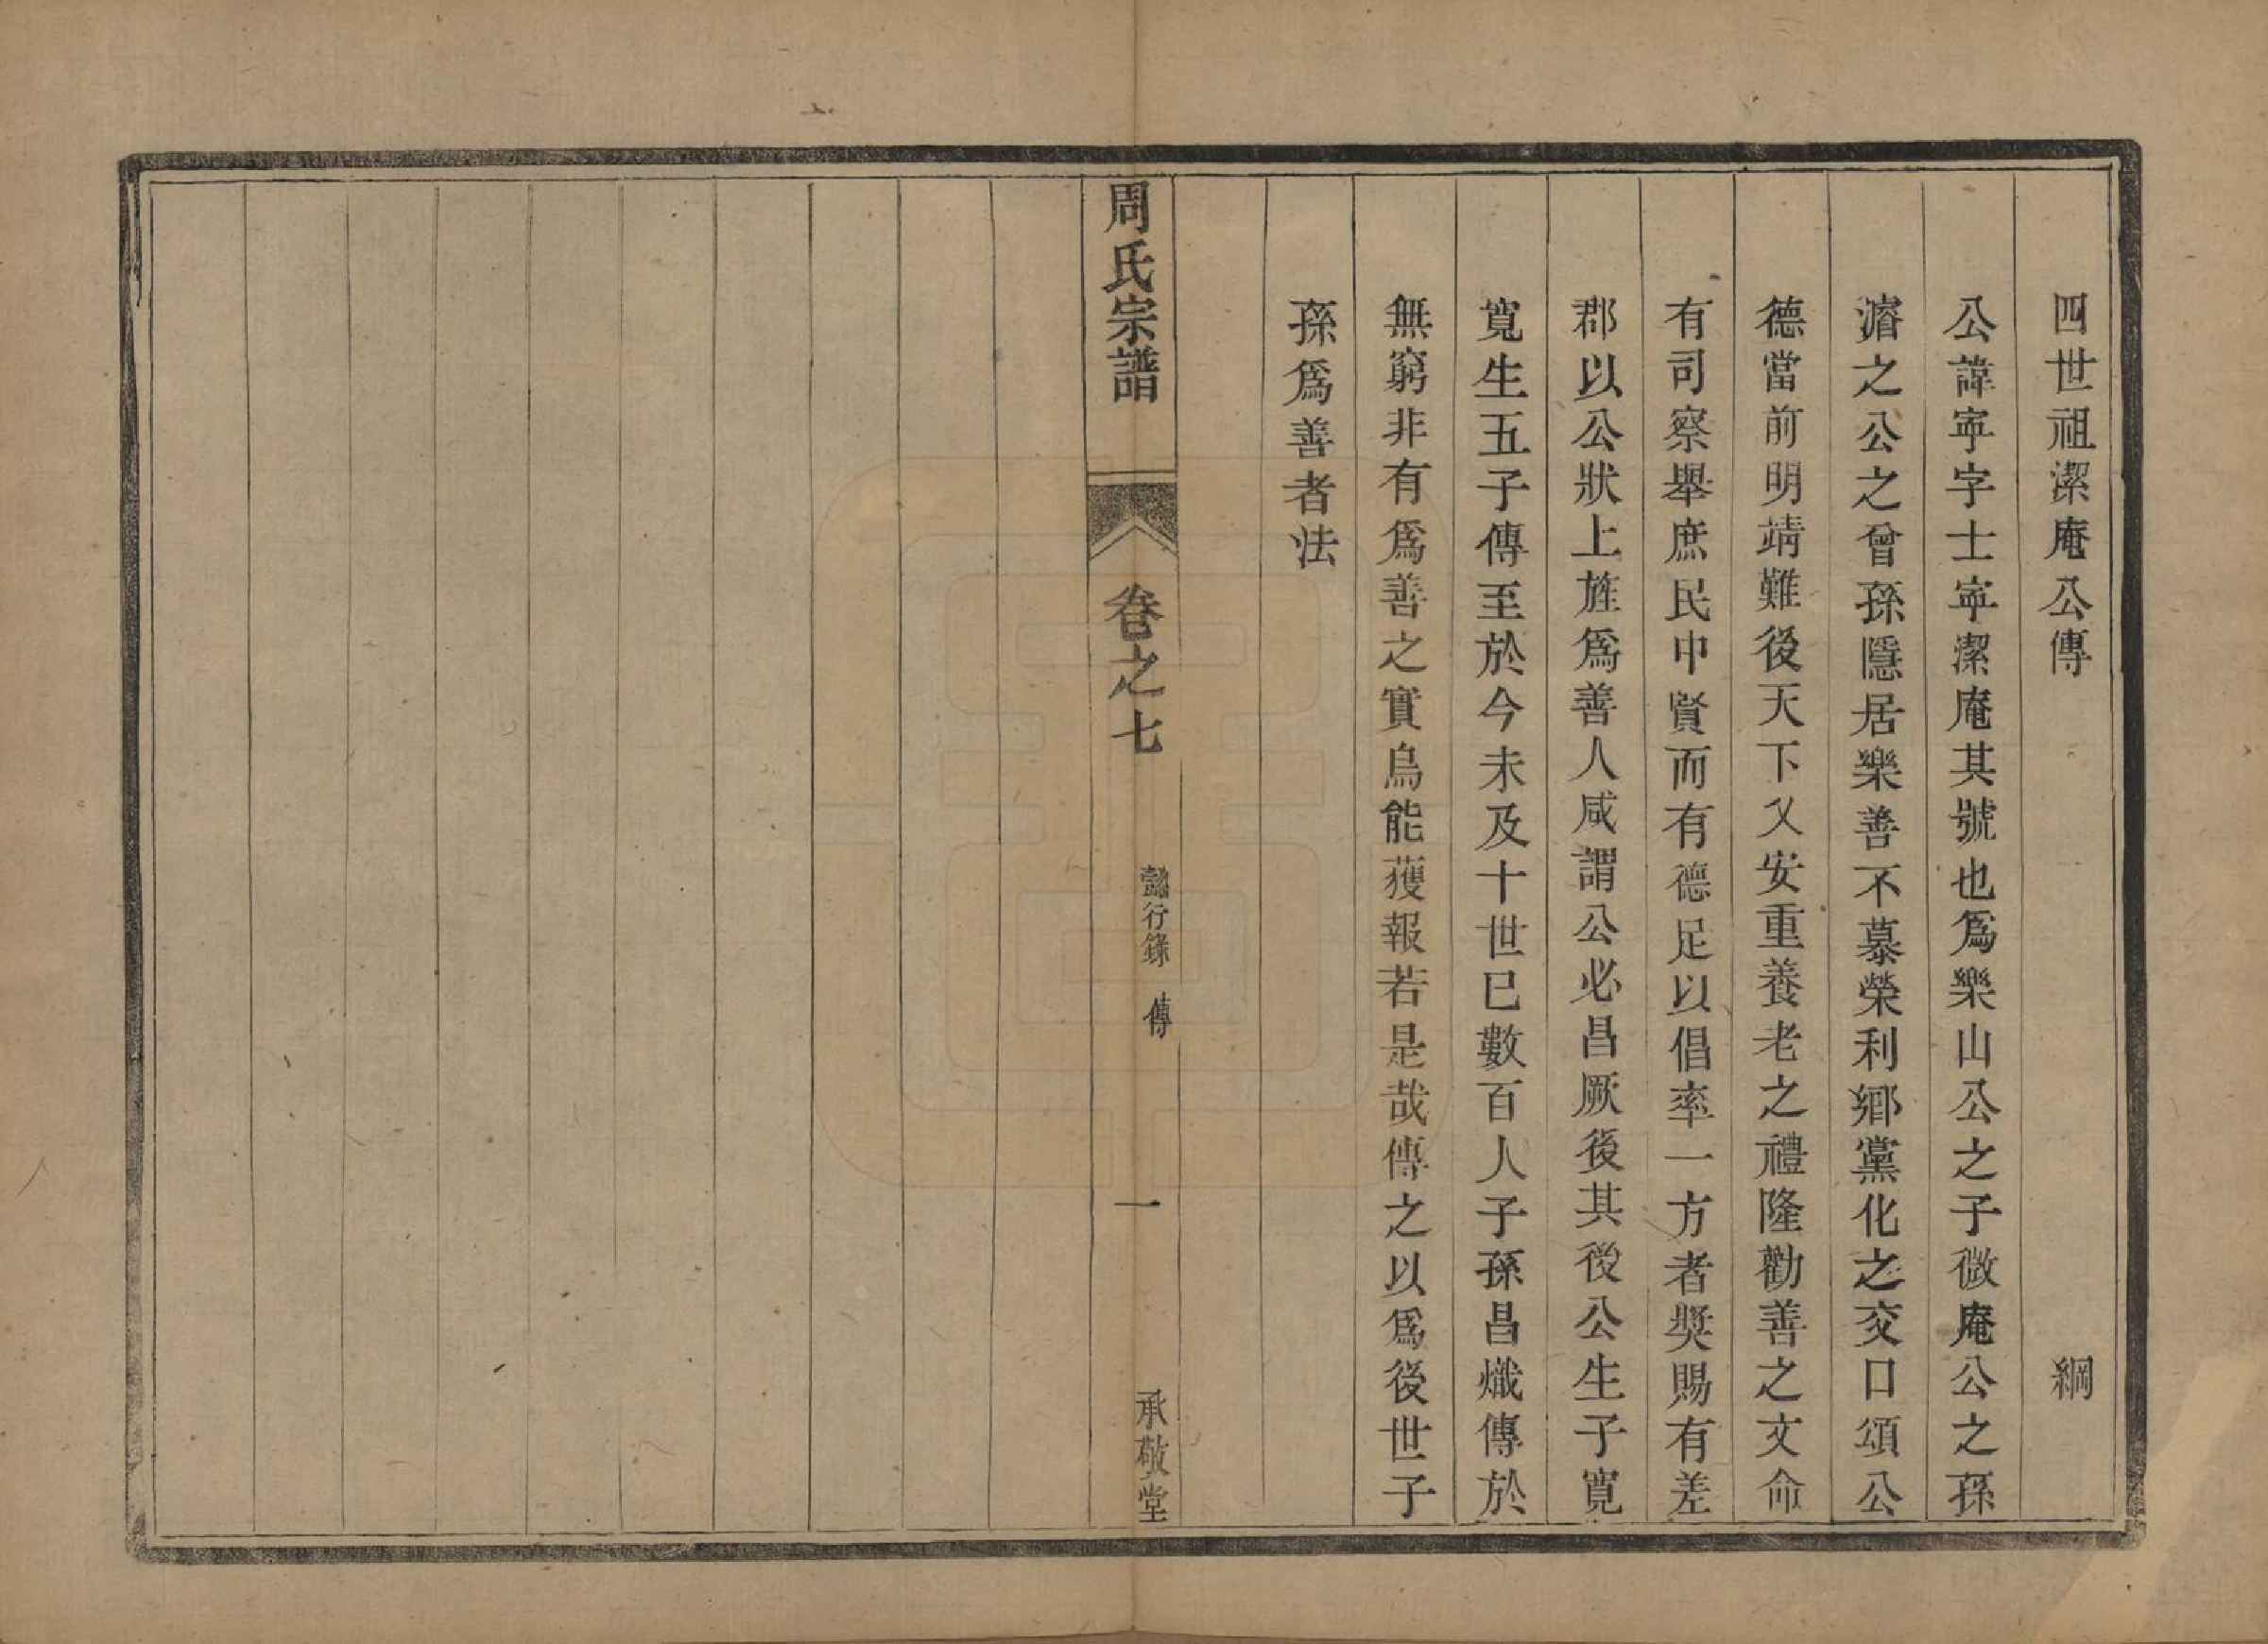 四世祖潔庵公傳　綱
公諱寕字士寕潔庵其號也爲樂山公之子微庵公之孫
濬之公之曾孫隱居樂善不慕榮利鄉黨化之交口頌公
德當前明靖難後天下乂安重養老之禮隆勸善之文命
有司察舉庶民中賢而有德足以倡率一方者獎賜有差
郡以公狀上旌爲善人咸謂公必昌厥後其後公生子寬
寬生五子傳至於今未及十世巳數百人子孫昌熾傳於
無窮非有爲善之實烏能獲報若是哉傳之以爲後世子
孫爲善者法
周氏宗譜　卷之七　懿行錄　傳　一　承敬堂